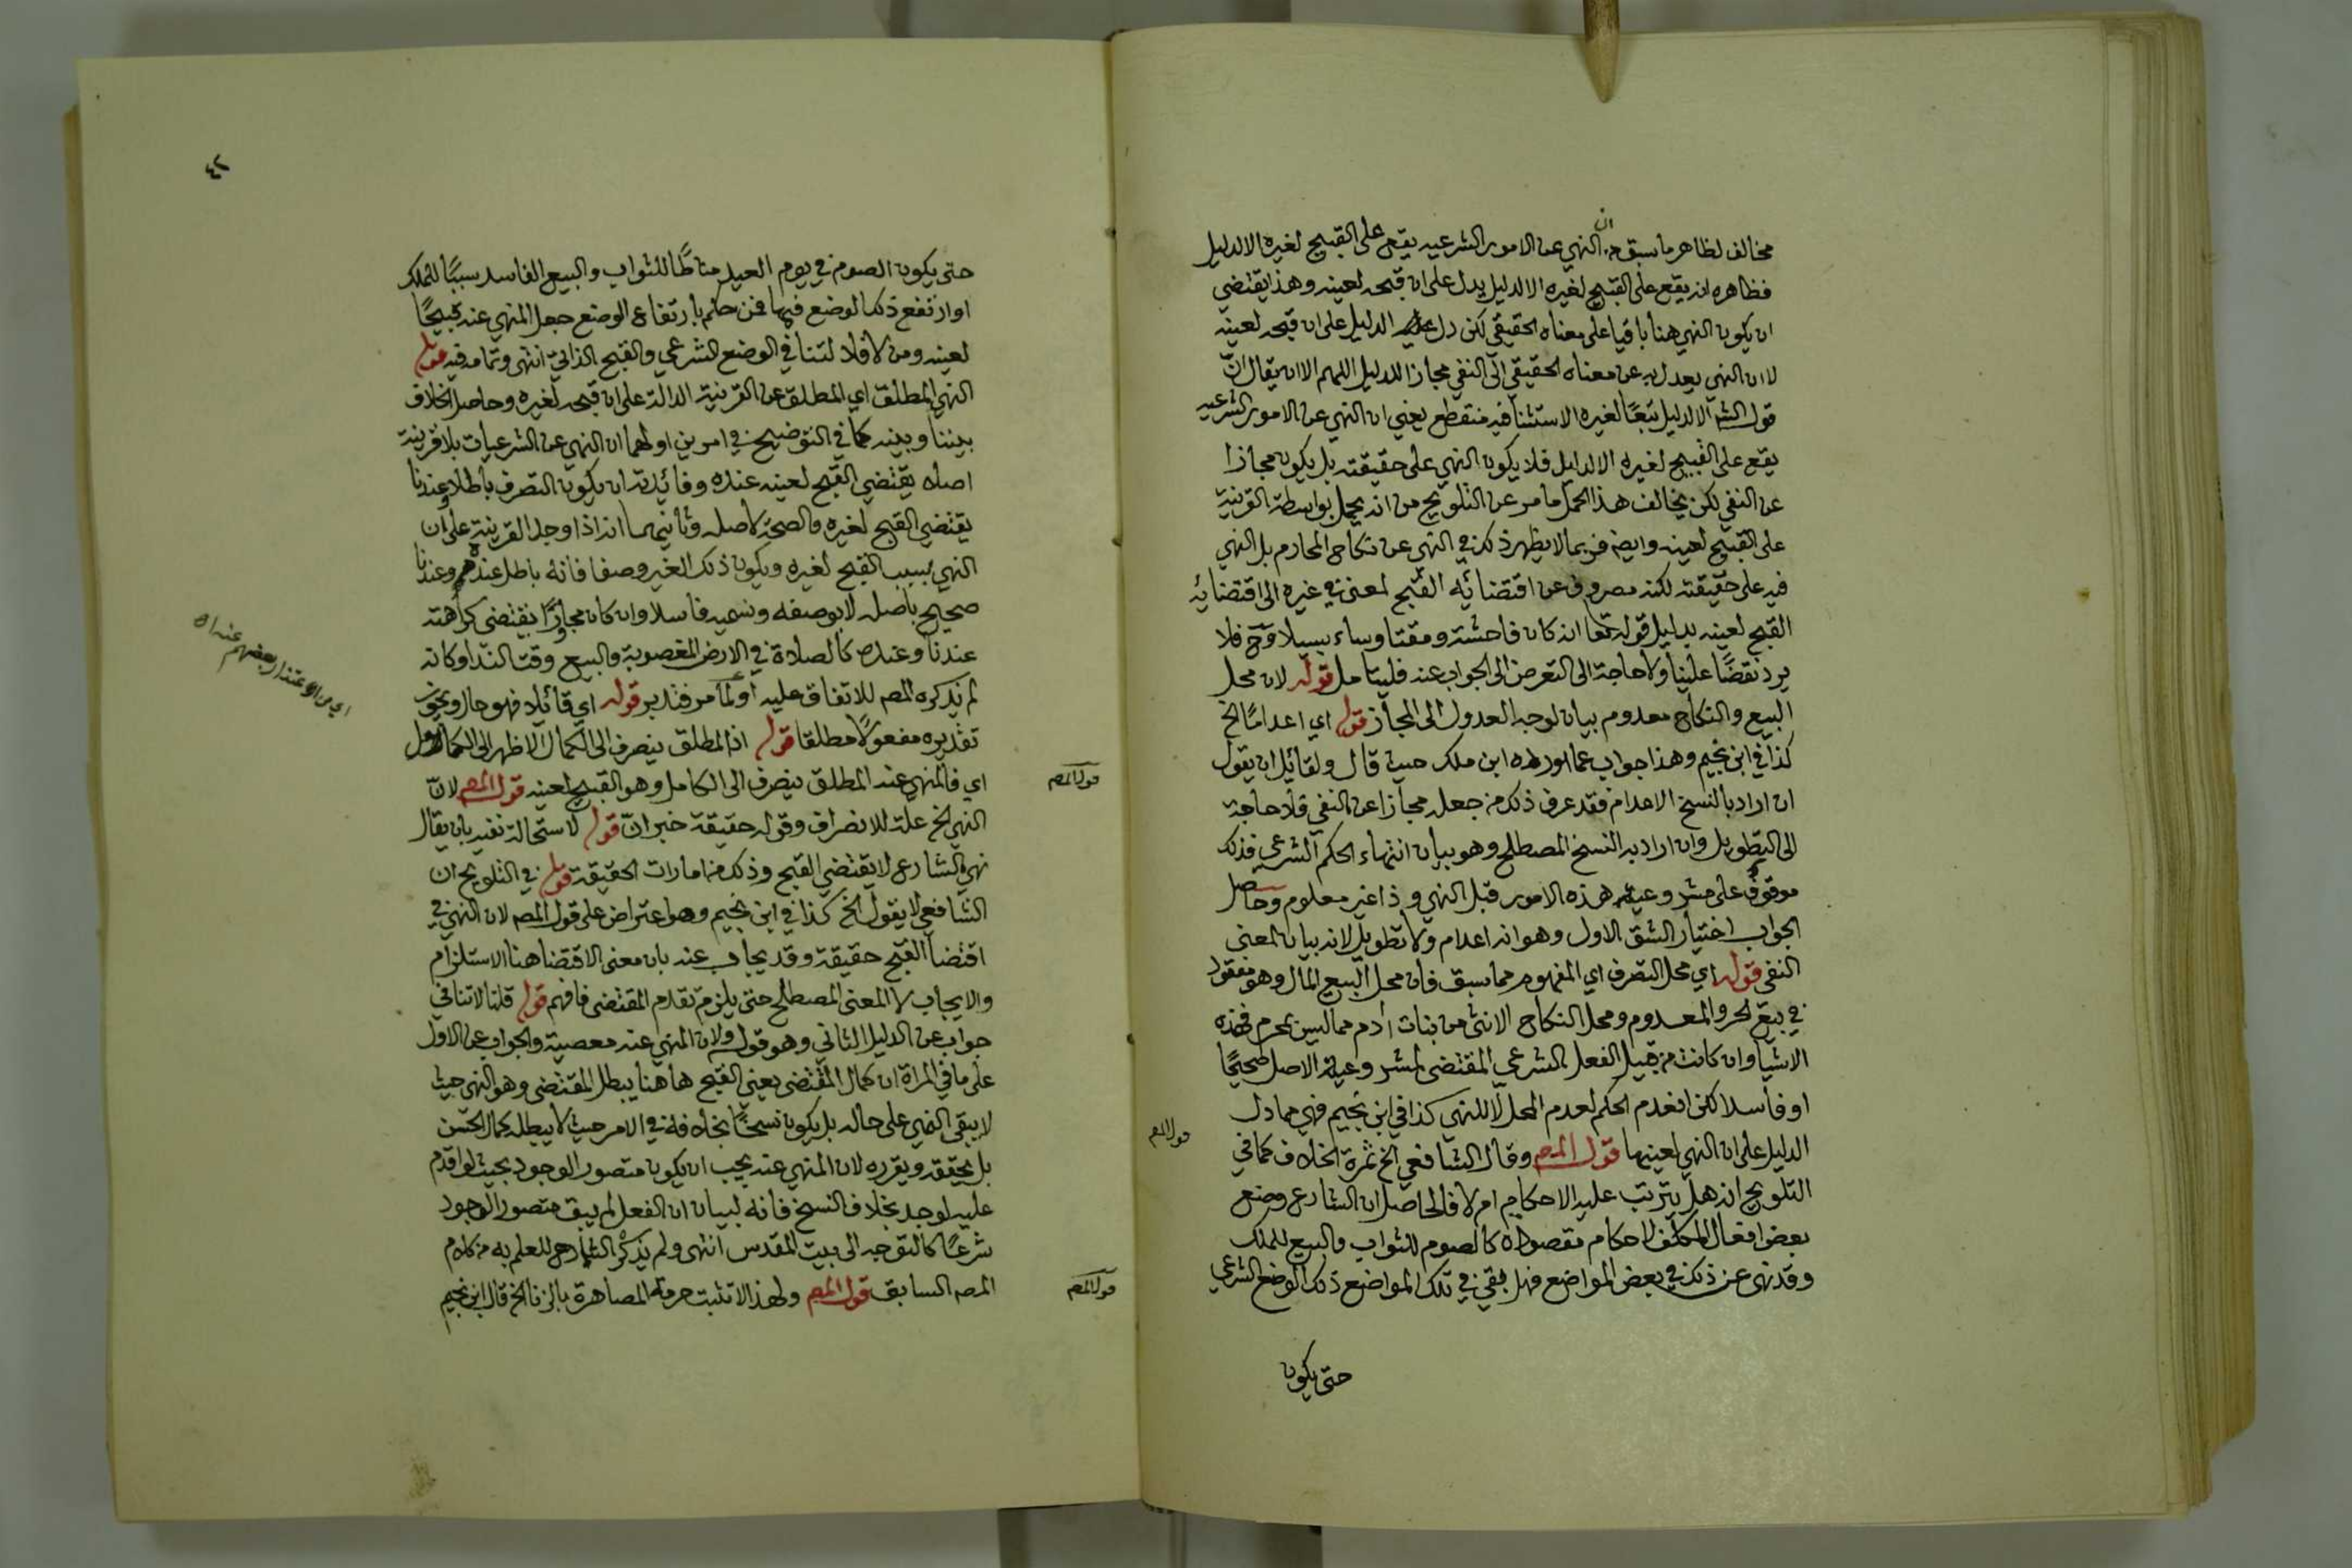 مخالف لظاهر ما سبق من ان النهي عن الامور الشرعيه يقع على القبيح لغيره الا لدليل
فظاهره انه يقع على القبيح لغيره الا لدليل يدل على ان قبحه لعينه وهذا يقتضي
ان يكون النهي هنا باقيا على معناه الحقيقي لكن دل الدليل على ان قبحه لعينه
لا ان النهي يعدل به عن معناه الحقيقي الى النفي مجازا للدليل اللهم الا ان يقال انّ
قول الشه الا لدليل تبعًا لغيره الاستثنا فيه منقطع يعني ان النهي عن الامور الشرعيه
يقع على القبيح لغيره الا لدليل فلا يكون النهي على حقيقته بل يكون مجازا
عن النفي لكن يخالف هذا الحمل ما مر عن التلويح من انه يحمل بواسطة القرينة
على القبيح لعينه وايضه فربما لا يظهر ذلك في النهي عن نكاح المحارم بل النهي
فيه على حقيقته لكنه مصروف عن اقتضائه القبح لمعنى في غيره الى اقتضائه
القبح لعينه بدليل قوله تعا انه كان فاحشة ومقتا وساء سبيلا وح فلا
يرد نقضًا علينا ولا حاجة الى التعرض الى الجواب عنه فليتامل قوله لان محل
البيع والنكاح معدوم بيان لوجه العدول الى المجاز قوله اي اعدامًا الخ
كذا في ابن نجيم وهذا جواب عما اورده ابن ملك حيث قال ولقائل ان يقول
ان اراد بالنسخ الاعدام فقد عرف ذلك من جعله مجازا عن النفي فلا حاجة
الى التطويل وان اراد به النسخ المصطلح وهو بيان انتهاء الحكم الشرعي فذلك
موقوف على مشروعية هذه الامور قبل النهي وذا غير معلوم وحاصل
الجواب اختيار الشق الاول وهو انه اعدام ولا تطويل لانه بيان لمعنى
النفي قوله اي محل التصرف اي المفهوم مما سبق فان محل البيع المال وهو مفقود
في بيع الحر والمعدوم ومحل النكاح الانثى من بنات ادم مما ليس بمحرم فهذه
الاشيا وان كانت من قبيل الفعل الشرعي المقتضى لمشروعية الاصل صحيحًا
او فاسدا لكن انعدم الحكم لعدم المحل لا للنهي كذا في ابن نجيم فهي مما دل
الدليل على ان النهي لعينها قول المصه وقال الشافعي الخ ثمرة الخلاف كما في
التلويح انه هل يترتب عليه الاحكام ام لا فالحاصل ان الشارع وضع
بعض افعال المكلف لاحكام مقصودة كالصوم للثواب والبيع للملك
وقد نهى عن ذلك في بعض المواضع فهل بقي في تلك المواضع ذلك الوضع الشرعي
حتى يكون
قول المصه
٤٢
حتى يكون الصوم في يوم العيد مناطًا للثواب والبيع الفاسد سببًا للملك
او ارتفع ذلك الوضع فيها فمن حكم بارتفاع الوضع جعل المنهي عنه قبيحًا
لعينه ومن لا فلا لتنافي الوضع الشرعي والقبح الذاتي انتهى وتمامه فيه قوله
النهي المطلق اي المطلق عن القرينة الدالة على ان قبحه لغيره وحاصل الخلاف
بيننا وبينه كما في التوضيح في امرين اولهما ان النهي عن الشرعيات بلا قرينة
اصلا يقتضي القبح لعينه عنده وفائدته ان يكون التصرف باطلا وعندنا
يقتضي القبح لغيره والصحة لاصله وثانيهما انه اذا وجد القرينة على ان
النهي بسبب القبح لغيره ويكون ذلك الغير وصفا فانه باطل عندهم وعندنا
صحيح باصله لا بوصفه ونسميه فاسدا وان كان مجاورًا يقتضي كراهته
عندنا وعنده كالصلاة في الارض المغصوبة والبيع وقت الندا وكانه
لم يذكره المصه للاتفاق عليه او لما مر فتدبر قوله اي قائلا فهو حال ويجوز
تقديره مفعولًا مطلقا قوله اذ المطلق ينصرف الى الكمال الاظهر الى الكامل
اي فالمنهي عنه المطلق ينصرف الى الكامل وهو القبيح لعينه قول المصه لانّ
النهي الخ علة للانصراف وقوله حقيقة خبر انّ قوله لاستحالة نفيه بان يقال
نهي الشارع لا يقتضي القبح وذلك من امارات الحقيقة قوله في التلويح ان
الشافعي لا يقول الخ كذا في ابن نجيم وهو اعتراض على قول المصه لان النهي في
اقتضا القبح حقيقة وقد يجاب عنه بان معنى الاقتضا هنا الاستلزام
والايجاب لا المعنى المصطلح حتى يلزم تقدم المقتضى فافهم قوله قلنا لا تنافي
جواب عن الدليل الثاني وهو قوله ولان المنهي عنه معصية والجواب عن الاول
على ما في المراة ان كمال المقتضى يعني القبح هاهنا يبطل المقتضى وهو النهي حيث
لا يبقى النهي على حاله بل يكون نسخًا بخلافه في الامر حيث لا يبطله كمال الحسن
بل يحققه ويقرره لان المنهي عنه يجب ان يكون متصور الوجود بحيث لو اقدم
عليه لوجد بخلاف النسخ فانه لبيان ان الفعل لم يبق متصور الوجود
شرعًا كالتوجه الى بيت المقدس انتهى ولم يذكره الشارح للعلم به من كلام
المصه السابق قول المصه ولهذا لا تثبت حرمة المصاهرة بالزنا الخ قال ابن نجيم
قول المصه
قول المصه